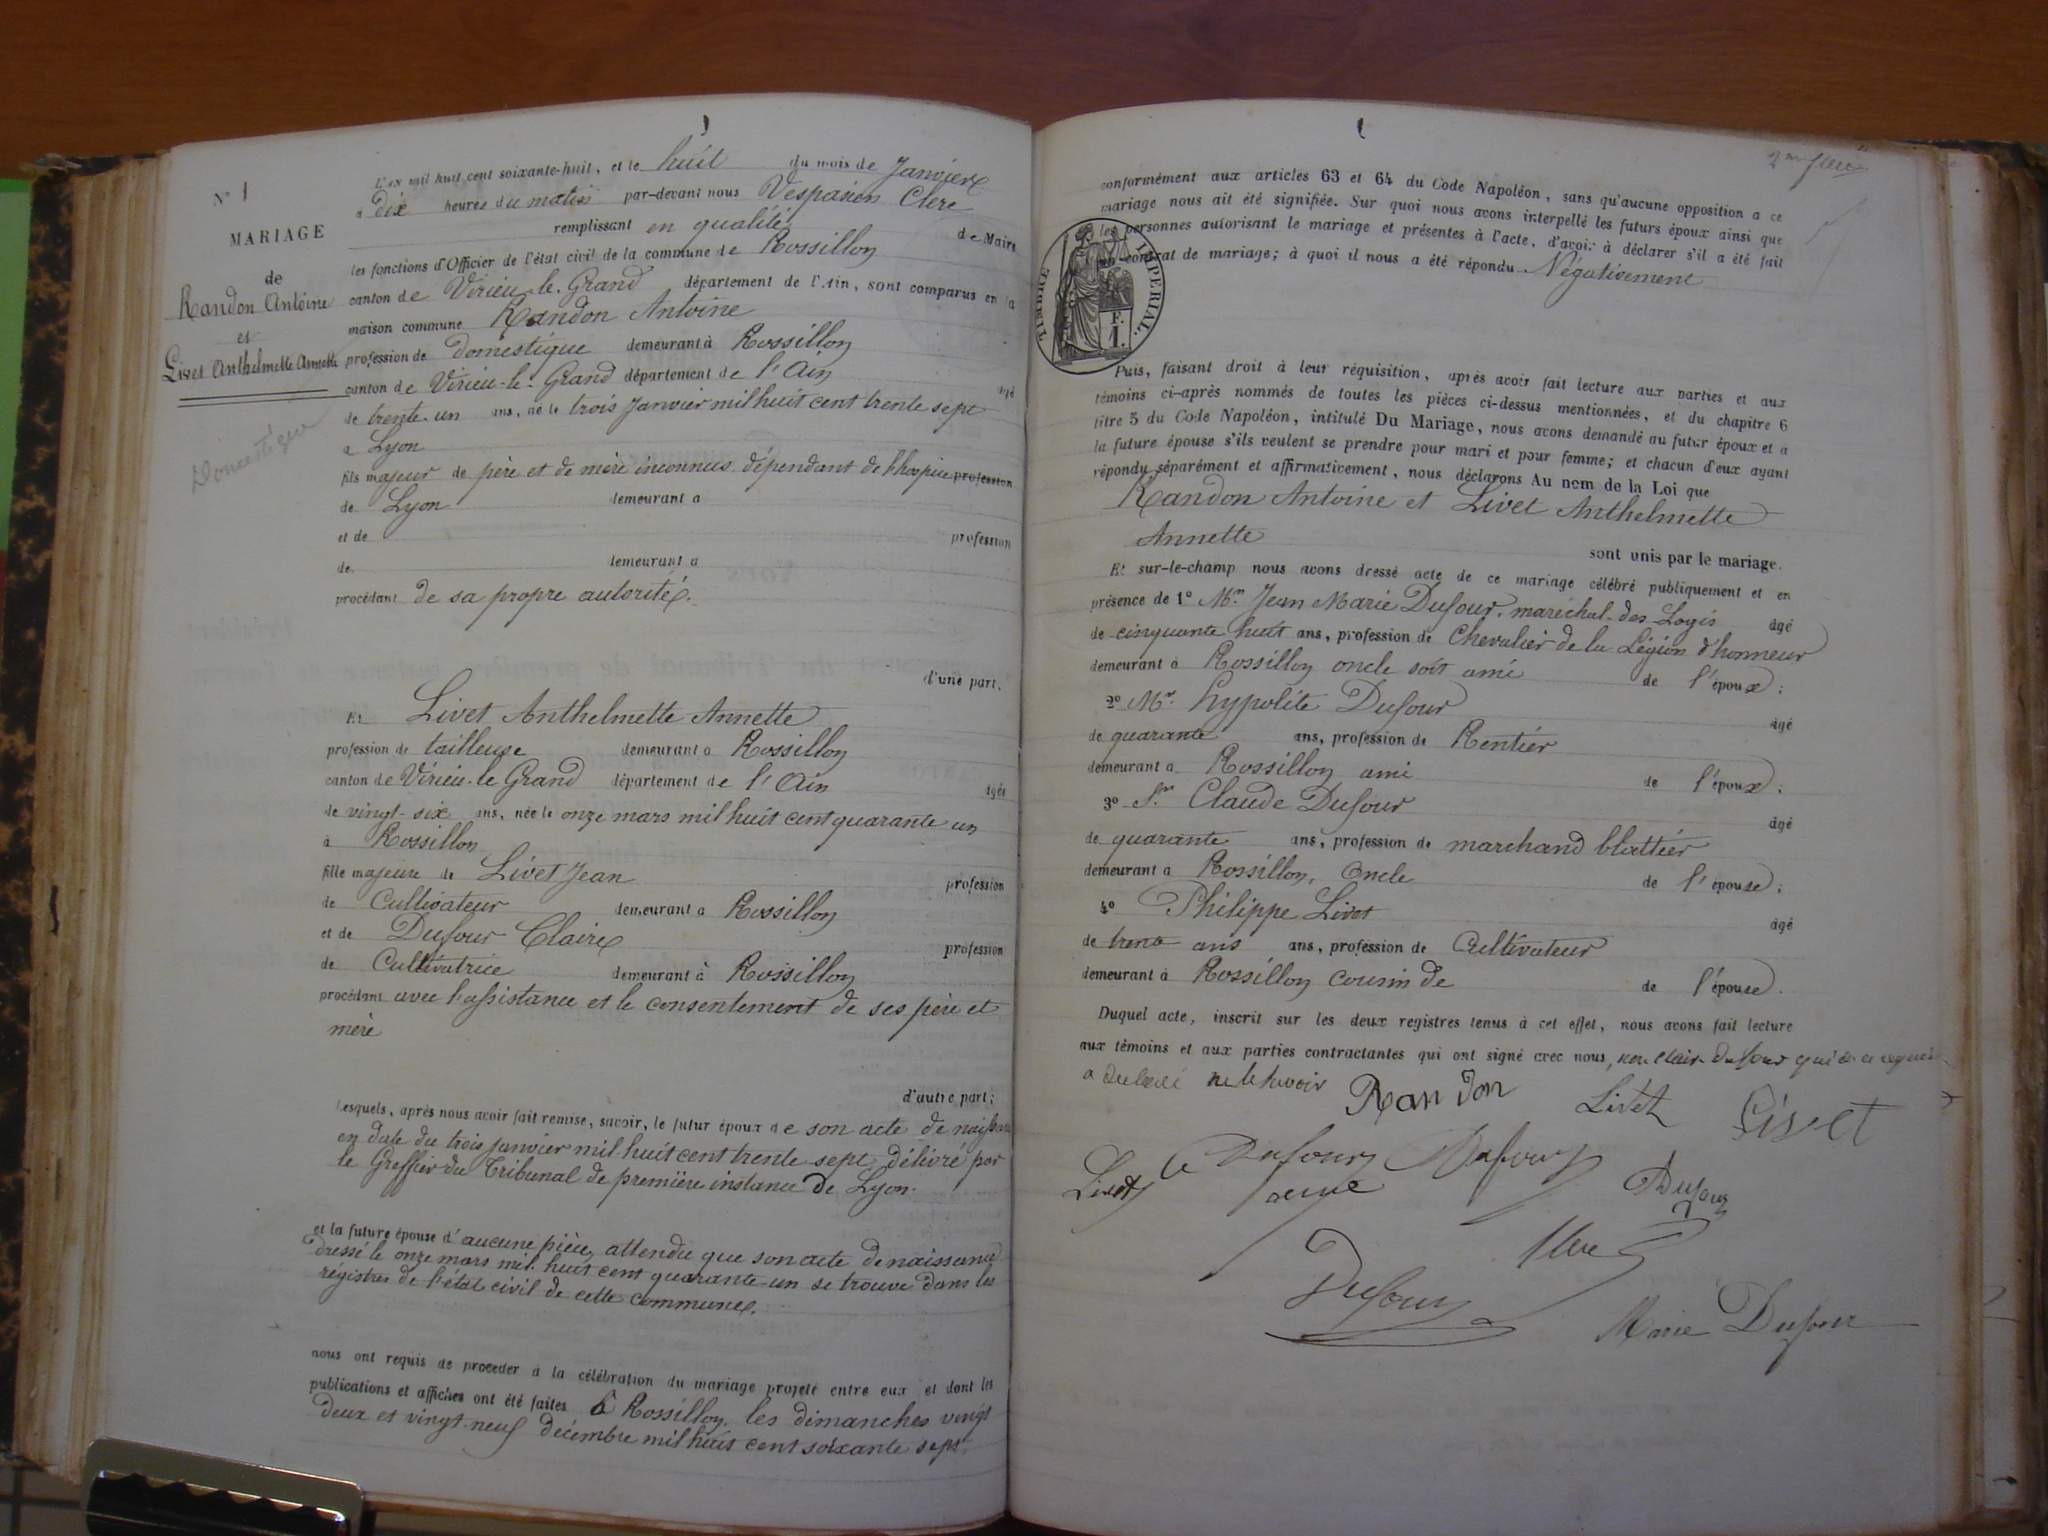 N° 1
MARIAGE
de
Randon Antoine
et
Livet Anthelmette Annette
Domestique
L'an mil huit cent soixante-huit, et le huit du mois de Janvier
à dix heures du matin par-devant nous Vespasien Clerc
remplissant en qualité de Maire
les fonctions d'Officier de l'état civil de la commune de Rossillon
canton de Virieu-le-Grand département de l'Ain, sont comparus en la
maison commune Randon Antoine
profession de domestique demeurant à Rossillon
canton de Virieu-le-Grand département de l'Ain âgé
de trente-un ans, né le trois Janvier mil huit cent trente sept
à Lyon
fils majeur de père et de mère inconnus dépendant de l'hospice profession
de Lyon demeurant à
et de profession
de demeurant à
procédant de sa propre autorité.
d'une part,
Et Livet Anthelmette Annette
profession de tailleuse demeurant à Rossillon
canton de Virieu-le Grand département de l'Ain âgée
de vingt-six ans, née le onze mars mil huit cent quarante un
à Rossillon
fille majeure de Livet Jean profession
de Cultivateur demeurant à Rossillon
et de Dufour Claire profession
de Cultivatrice demeurant à Rossillon
procédant avec l'assistance et le consentement de ses père et
mère
d'autre part;
Lesquels, après nous avoir fait remise, savoir, le futur époux de son acte de naissance
en date du trois janvier mil huit cent trente-sept délivré par
le Greffier du Tribunal de première instance de Lyon.
et la future épouse d'aucune pièce, attendu que son acte de naissance
dressé le onze mars mil huit cent quarante-un se trouve dans les
régistres de l'état civil de cette commune.
nous ont requis de procéder à la célébration du mariage projeté entre eux et dont les
publications et affiches ont été faites à Rossillon, les dimanches vingt
deux et vingt-neuf décembre mil huit cent soixante sept.
conformément aux articles 63 et 64 du Code Napoléon, sans qu'aucune opposition a ce
mariage nous ait été signifiée. Sur quoi nous avons interpellé les futurs époux ainsi que
les personnes autorisant le mariage et présentes à l'acte, d'avoir à déclarer s'il a été fait
un contrat de mariage; à quoi il nous a été répondu Négativement
TIMBRE IMPÉRIAL.
F.
1.
Puis, faisant droit à leur réquisition, après avoir fait lecture aux parties et aux
témoins ci-après nommés de toutes les pièces ci-dessus mentionnées, et du chapitre 6
titre 5 du Code Napoléon, intitulé Du Mariage, nous avons demandé au futur époux et a
la future épouse s'ils veulent se prendre pour mari et pour femme; et chacun d'eux ayant
répondu séparément et affirmativement, nous déclarons Au nom de la Loi que
Randon Antoine et Livet Anthelmette
Annette
sont unis par le mariage.
Et sur-le-champ nous avons dressé acte de ce mariage célébré publiquement et en
présence de 1° Mr. Jean Marie Dufour, maréchal-des-Logis âgé
de cinquante huit ans, profession de Chevalier de la Légion d'honneur
demeurant à Rossillon oncle soit ami de l'époux;
2° Mr. hypolite Dufour âgé
de quarante ans, profession de Rentier
demeurant à Rossillon ami de l'époux;
3° Sr. Claude Dufour âgé
de quarante ans, profession de marchand blattier
demeurant à Rossillon, Oncle de l'épouse;
4° Philippe Livet âgé
de trente ans ans, profession de Cultivateur
demeurant à Rossillon cousin de de l'épouse.
Duquel acte, inscrit sur les deux registres tenus à cet effet, nous avons fait lecture
aux témoins et aux parties contractantes qui ont signé avec nous, non Claire Dufour qui de ce requise
a déclaré ne le savoir
Randon Livet Livet
Livet Dufour Dufour Dufour
Clerc
Dufour
Marie Dufour